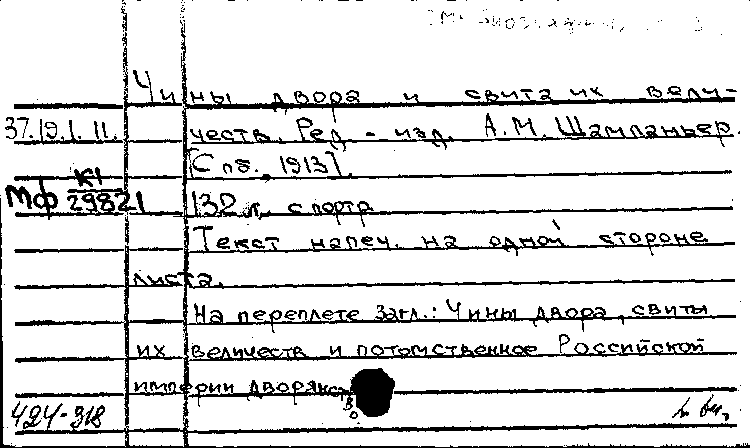 Чины двора и свита их вели-
37.19.1.11. честв. Ред. - изд. А.М. Шампаньер.
[Спб., 1913].
МФ К1/29821 132 л. с портр.
Текст напеч. на одной стороне
листа.
На переплете загл.: Чины двора, свиты
их величеств и потомственное Российской
империи дворянство
424-318